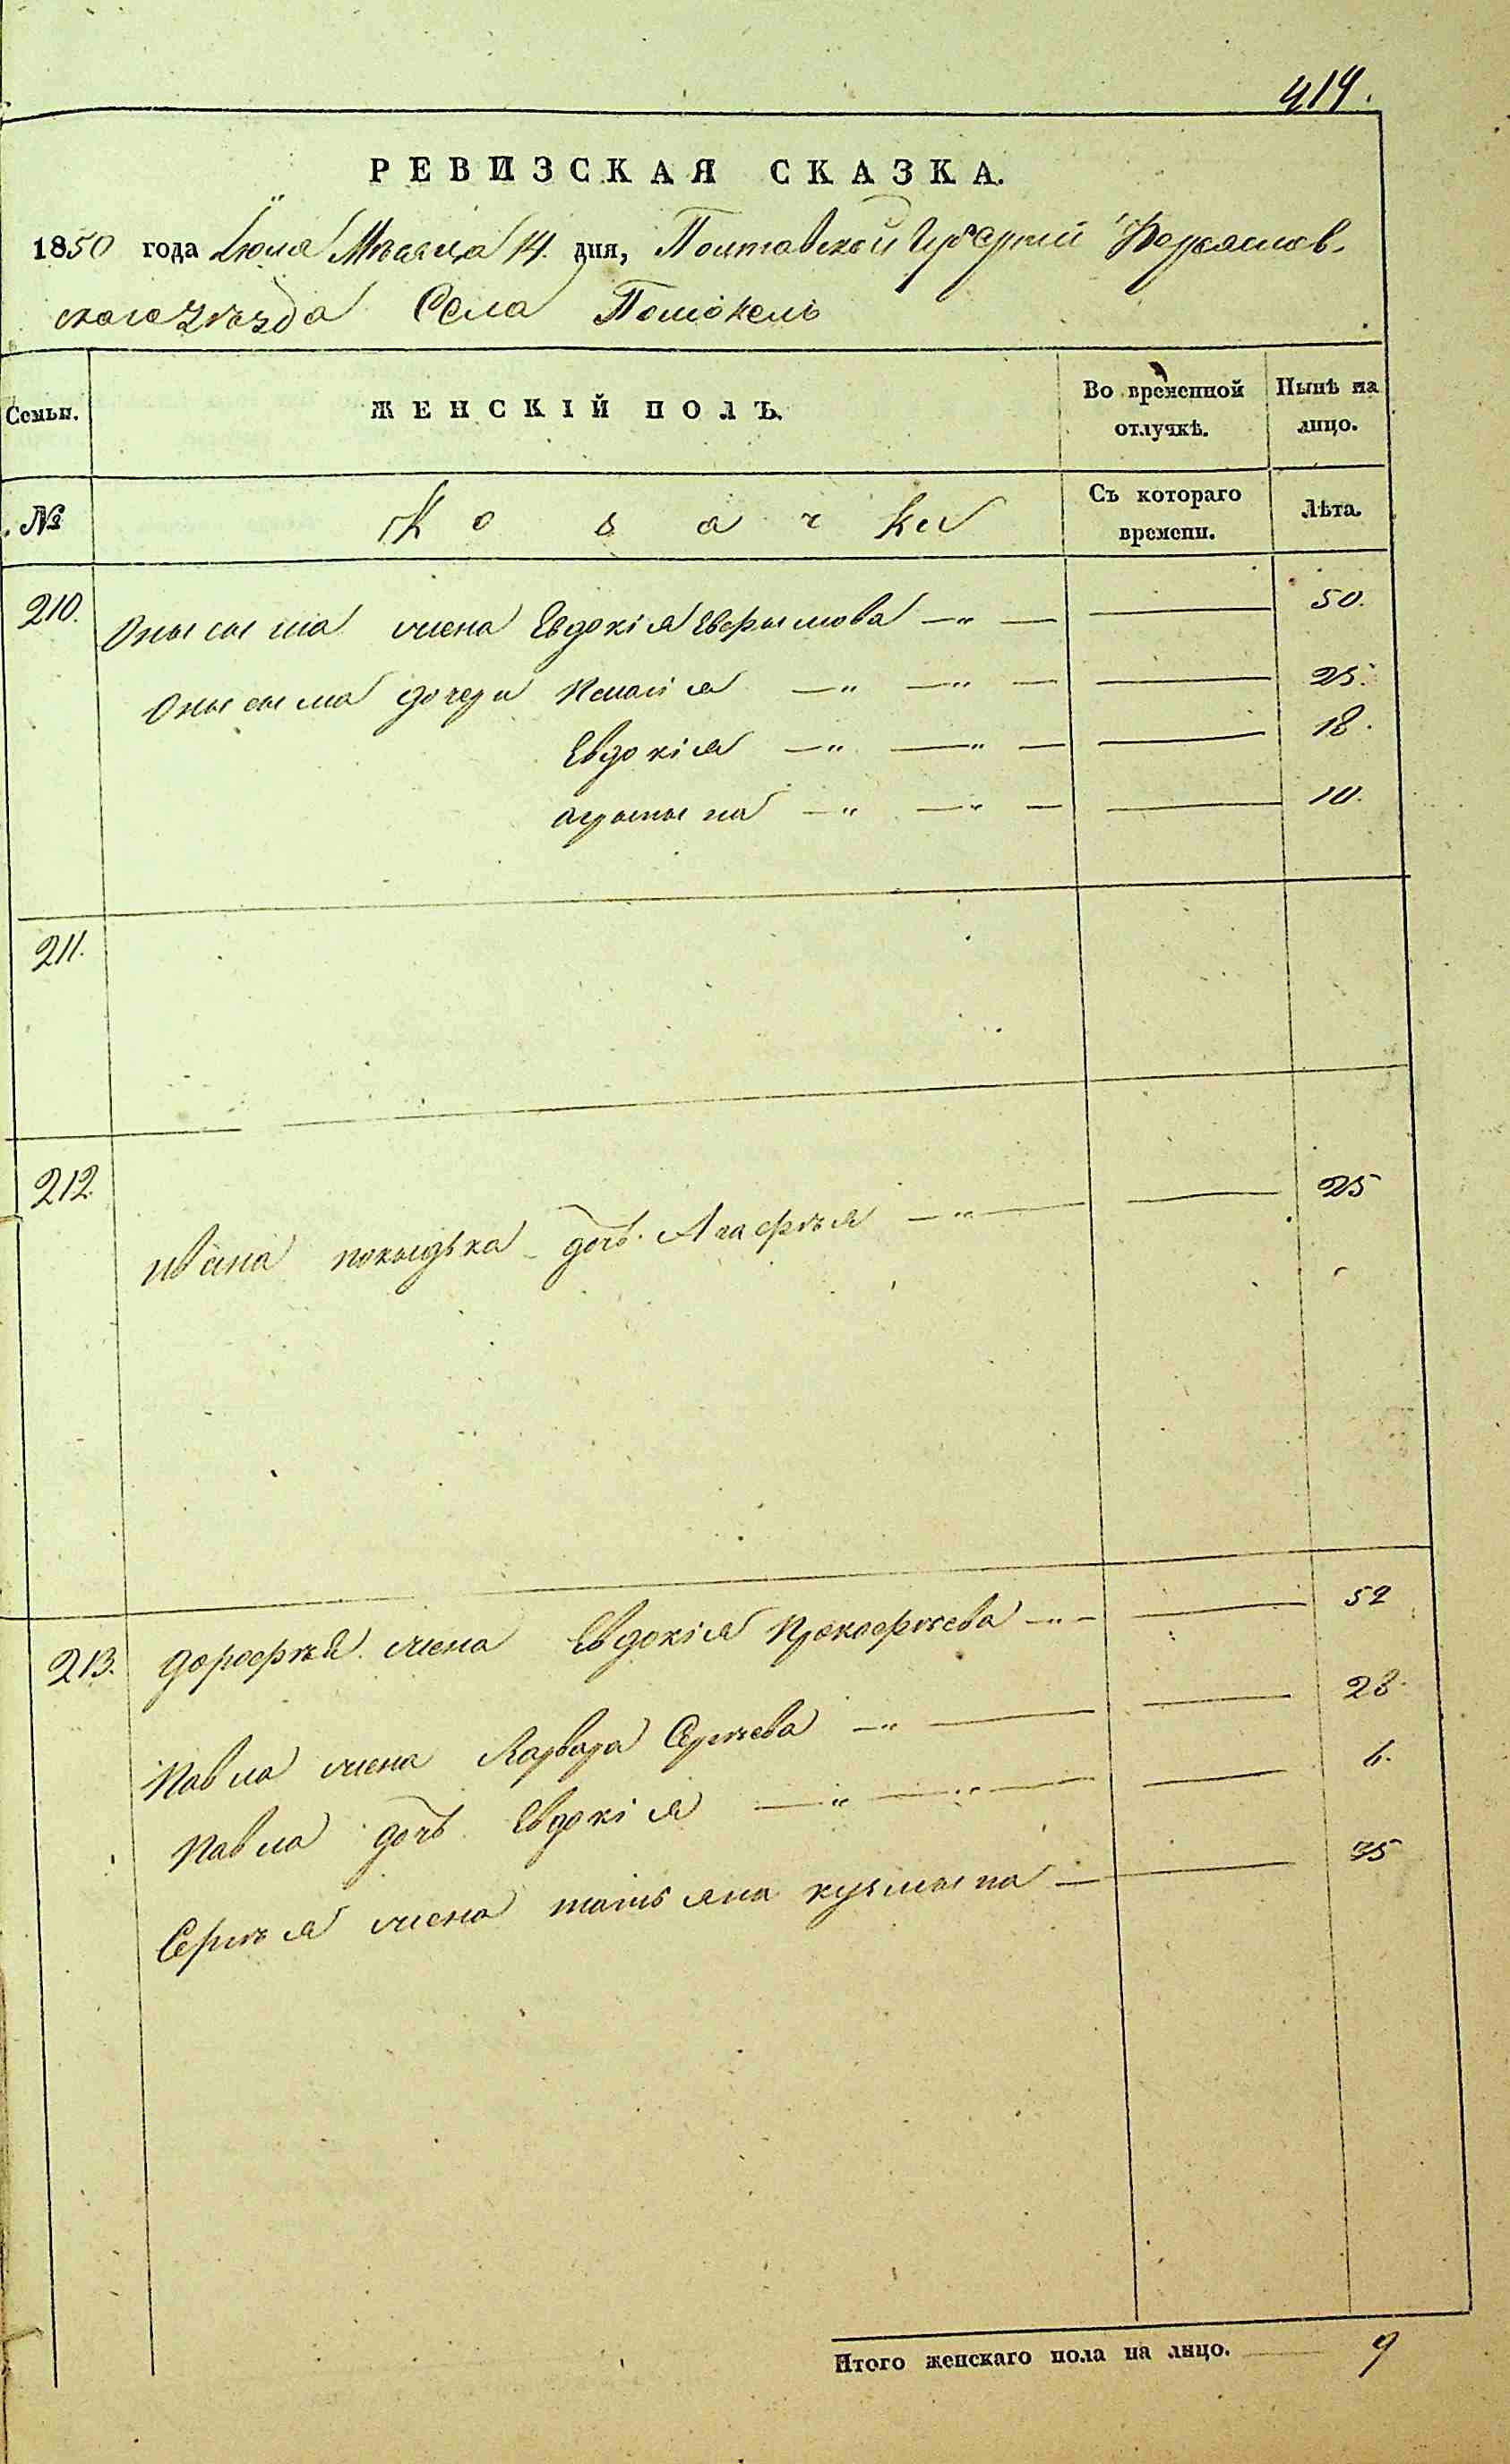 414.
РЕВИЗСКАЯ СКАЗКА.
1850 года Iюля Мѣсяца 14. дня, Полтавской Губернiи Переяслав-
скаго Уѣзда Села Помокель
Семьи. ЖЕНСКІЙ ПОЛЪ. Во временной отлучкѣ. Нынѣ на лицо.
№ Козачки Съ котораго времени. Лѣта.
210. Онысыма жена Евдокія Евфымова —„— — 50.
Онысыма дочери Пелагія —„ —„ — — 25.
Евдокія —„ —„ — — 18.
агрыпына —„ —„ — — 10.
211.
212. ивана дочь Агафія —„— — 25
213. дорофѣя жена Евдокія Прокофѣева —„— — 52
Павла жена Варвара Сергѣева —„ — — 28.
Павла дочь Евдокія —„ —„— — 6.
Сергѣя жена татьяна кузмына — — 35
Итого женскаго пола на лицо. — 9